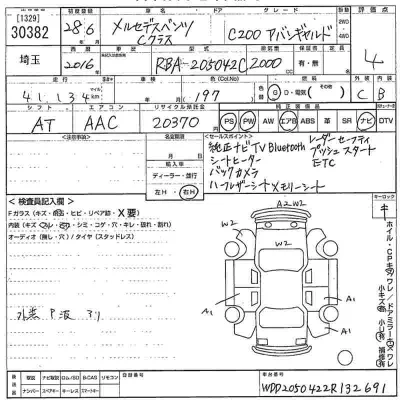 [1329]
30382
初度登録
28.6
車名
メルセデスベンツ
Cクラス
ドア
グレード
C200 アバンギャルド
2WD
4WD
評価点
4
埼玉
西暦
2016
型式
RBA-205042C
排気量
2000
エアコン
有・無
走行
41,134
km
車検
色
(Color No.)
197
燃料
G・D・電気
外
C
内
B
シフト
AT
エアコン
AAC
リサイクル預託金
20370
純正装備品
PS PW AW エアB AB 革 SR ナビ DTV
<注意事項>
名変期限
月
日
輸入車
ディーラー・並行
左H・右H
<セールスポイント>
純正ナビTV Bluetooth
シートヒーター
バックカメラ
ハーフレザーシート メモリーシート
レーダーセーフティ
プッシュスタート
ETC
<検査員記入欄>
Fガラス (キズ・飛石・ヒビ・リペア跡・X要)
内装 (キズ・スレ・汚レ・シミ・コゲ・穴・キレ・破れ・割れ)
オーディオ (無し・穴) タイヤ (スタッドレス)
外装 P 波 スリ
A2 W2
W2
W2
A1
A1
A1
キーロック
ホイル・CPキズ ワレ
ドアミラーキズ ワレ
小キズ有
小凹有
補修有
登録
ナンバー
取説
スペアキー
ナビ取説
CD/SD
スマートキー
B-CAS
リモコン
登録番号
車台番号
WDD2050422R132691